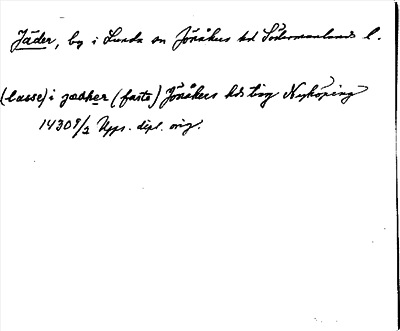 Jäder, by i Lunda sn Jönåkers hd Södermanlands l.
(lasse) i gædher (faste) Jönåkers hds ting Nyköping
1430 9/2 Upps. dipl. orig.